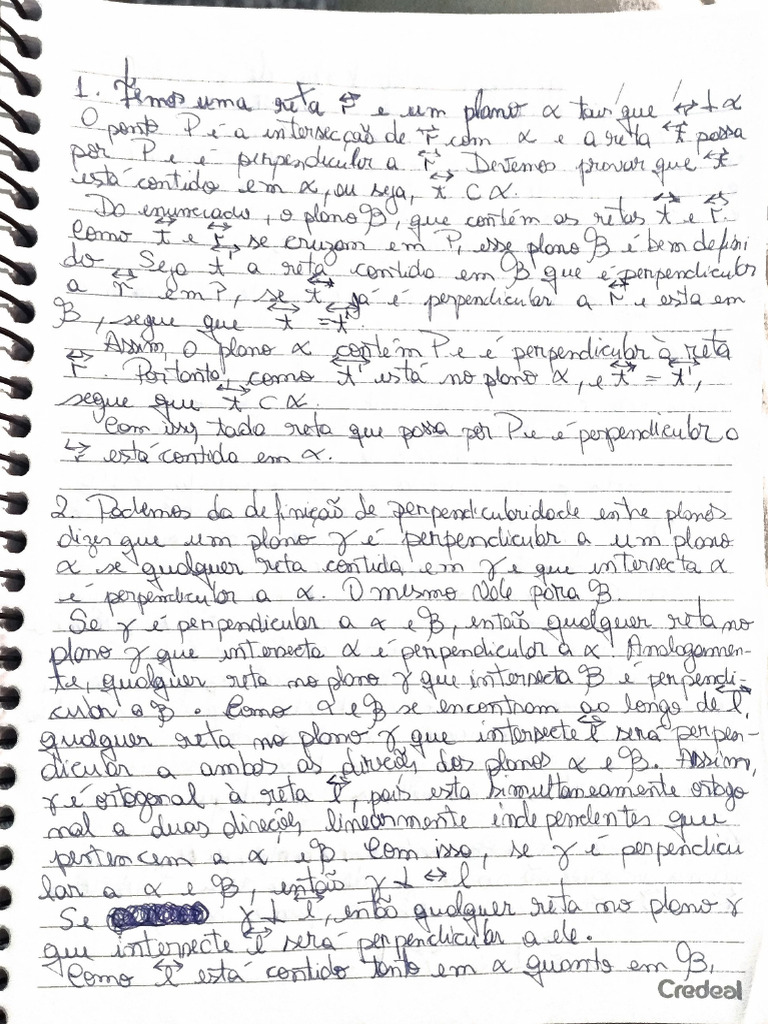 1. Temos uma reta r↔ e um plano α tais que ↔r ⊥ α
O ponto P é a intersecção de r↔ com α e a reta t↔ passa
por P e é perpendicular a r↔. Devemos provar que t↔
está contido em α, ou seja, t↔ ⊂ α.
Do enunciado, o plano β, que contém as retas t↔ e r↔.
Como t↔ e r↔ se cruzam em P, esse plano β é bem defini
do. Seja t'↔ a reta contida em β que é perpendicular
a r↔ em P, se t↔ já é perpendicular a r↔ e esta em
β, segue que t↔ = t'↔.
Assim, o plano α contém P e é perpendicular à reta
r↔. Portanto, como t'↔ está no plano α, e t↔ = t'↔,
segue que t↔ ⊂ α.
Com isso, toda reta que passa por P e é perpendicular a
r↔ está contida em α.
2. Podemos da definição de perpendicularidade entre planos
dizer que um plano γ é perpendicular a um plano
α se qualquer reta contida em γ e que intersecta α
é perpendicular a α. O mesmo vale para β.
Se γ é perpendicular a α e β, então qualquer reta no
plano γ que intersecta α é perpendicular à α. Analogamen-
te, qualquer reta no plano γ que intersecta β é perpendi-
cular a β. Como α e β se encontram ao longo de l↔,
qualquer reta no plano γ que intersecte l↔ será perpen-
dicular a ambos as direções dos planos α e β. Assim,
γ é ortogonal à reta l↔, pois esta simultaneamente ortogo
nal a duas direções linearmente independentes que
pertencem a α e β. Com isso, se γ é perpendicu
lar a α e β, então γ ⊥ ↔ l
Se γ ⊥ l↔, então qualquer reta no plano γ
que intersecte l↔ será perpendicular a ele.
Como l↔ está contido tanto em α quanto em β,
Credeal